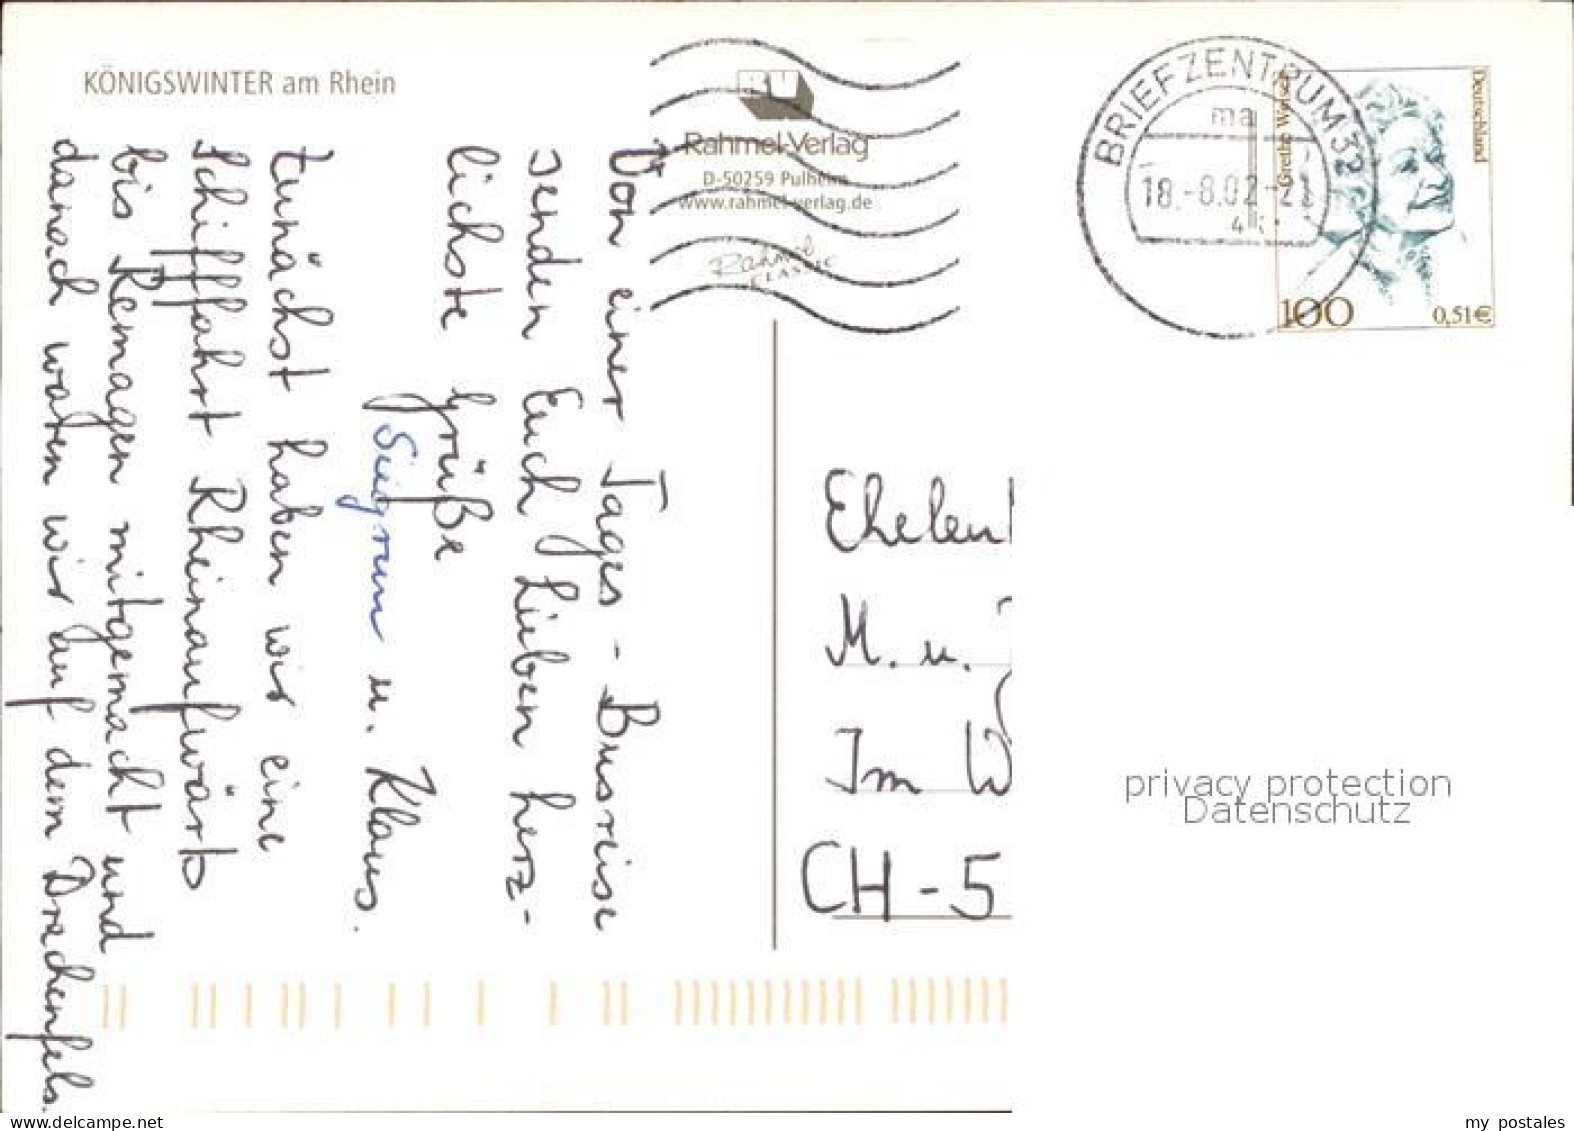 KÖNIGSWINTER am Rhein
Rahmel-Verlag
D-50259 Pulheim
www.rahmel-verlag.de
Rahmel
CLASSIC
BRIEFZENTRUM 32
ma
18.-8.02-21
Grethe Weiser
Deutschland
100
0,51€
Von einer Tages - Busreise
senden Euch Lieben herz-
lichste Grüße
Siegrun u. Klaus.
Zunächst haben wir eine
Schifffahrt Rheinaufwärts
bis Remagen mitgemacht und
danach waren wir auf dem Drachenfels.
M. u.
Im W
CH - 5
privacy protection
Datenschutz
delcampe.net
my postales